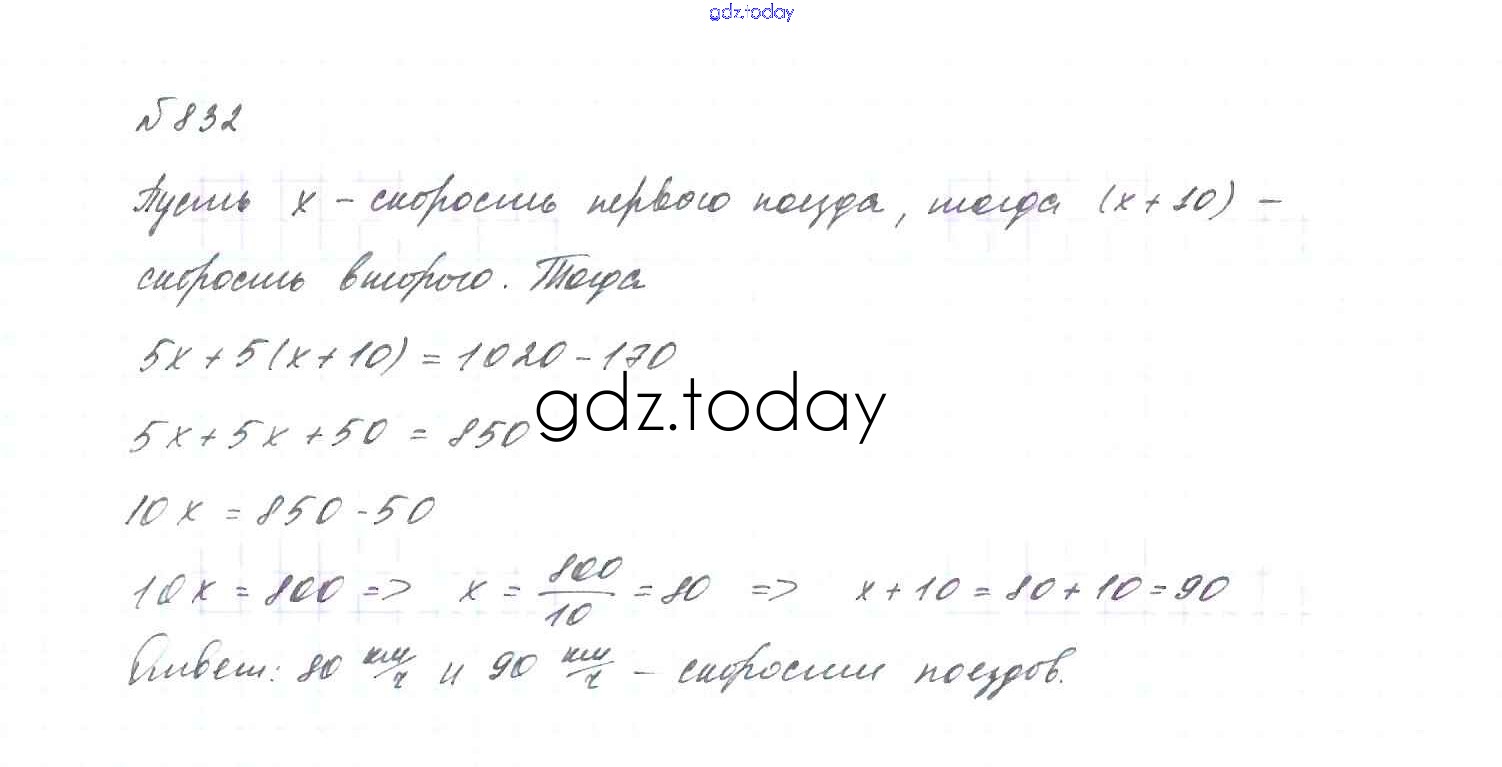 gdz.today
№832
Пусть x – скорость первого поезда, тогда (x+10) –
скорость второго. Тогда
5x+5(x+10)=1020-170
gdz.today
5x+5x+50=850
10x=850-50
10x=800 => x=800/10=80 => x+10=80+10=90
Ответ: 80 км/ч и 90 км/ч – скорости поездов.